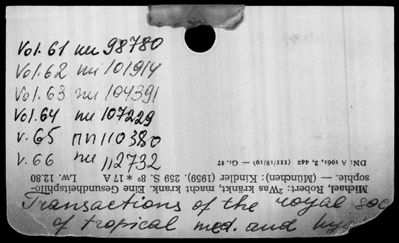 Vol. 61 nu 98780
Vol. 62 nu 101914
Vol. 63 nu 104391
Vol. 64 nu 107229
v. 65 nn 110380
v. 66 nu 112732
DN: A 1961, 2, 442 (III/18/19) — Gr. 17
sophie. — (München): Kindler (1959). 259 S. 8° * 17 A Lw. 12.80
Michael, Robert: (Was kränkt, macht krank. Eine Gesundheitsphilo-
Transactions of the royal soc
of tropical med. and hyg